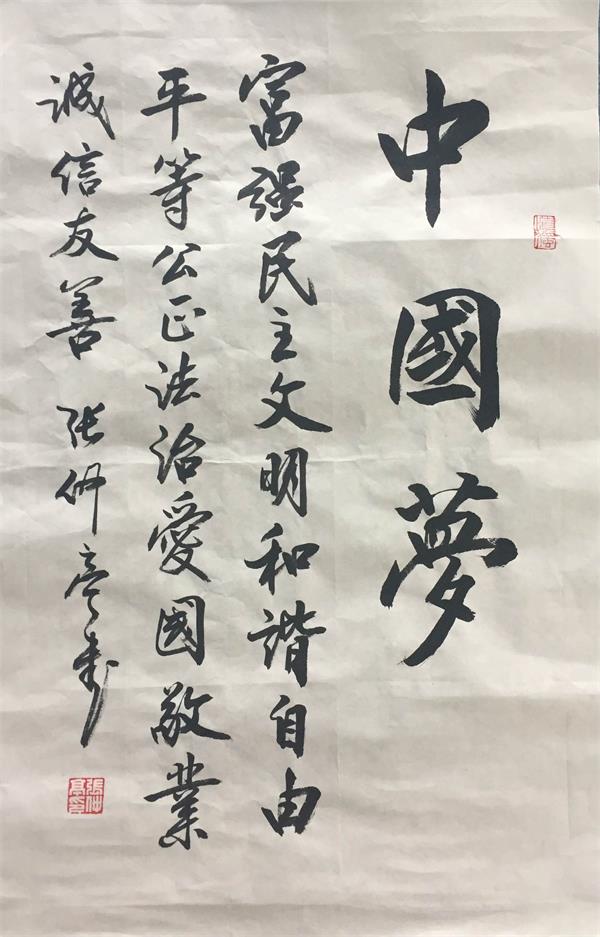 中國夢
富强民主文明和諧自由
平等公正法治愛國敬業
誠信友善 张仲亭书
張仲亭印